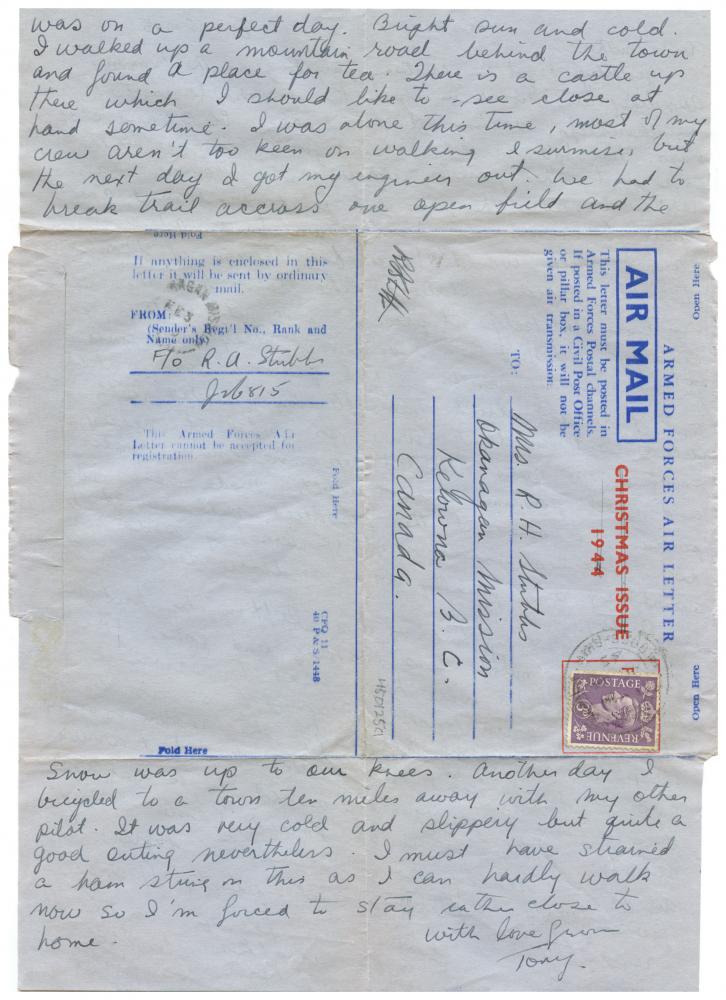 was on a perfect day. Bright sun and cold.
I walked up a mountain road behind the town
and found a place for tea. There is a castle up
there which I should like to see close at
hand sometime. I was alone this time, most of my
crew aren't too keen on walking I surmise, but
the next day I got my engineer out. We had to
break trail accross one open field and the
Fold Here
If anything is enclosed in this
letter it will be sent by ordinary
mail.
FROM:
(Sender's Regt'l No., Rank and
Name only)
F/O R. A. Stubbs
J26815
This Armed Forces Air
Letter cannot be accepted for
registration.
Fold Here
CFQ 11
40 P & S 1448
Fold Here
Open Here
ARMED FORCES AIR LETTER
Open Here
AIR MAIL
This letter must be posted in
Armed Forces Postal channels.
If posted in a Civil Post Office
or pillar box, it will not be
given air transmission.
CHRISTMAS ISSUE
1944
POSTAGE
3D
REVENUE
TO:
Mrs. R. H. Stubbs
Okanagan Mission
Kelowna B.C.
Canada.
Snow was up to our knees. Another day I
bicycled to a town ten miles away with my other
pilot. It was very cold and slippery but quite a
good outing nevertheless. I must have strained
a ham string on this as I can hardly walk
now so I'm forced to stay rather close to
home.
with love from
Tony.